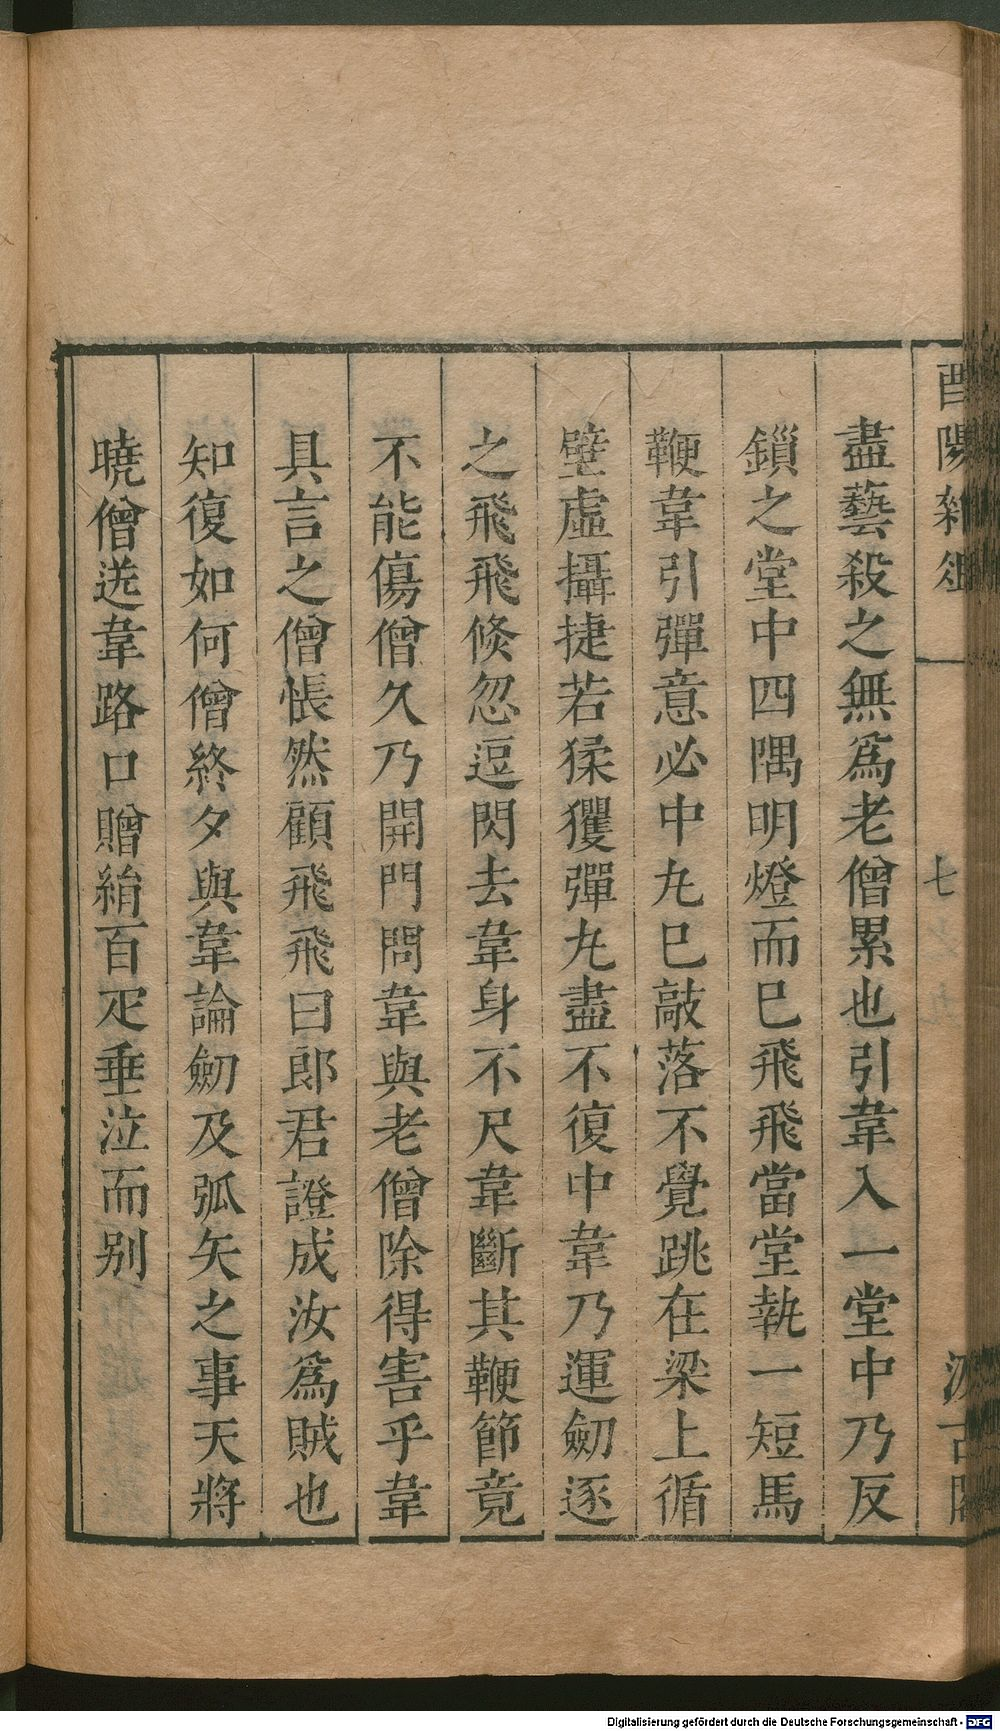 酉陽雜俎
七
汲古閣
盡藝殺之無爲老僧累也引韋入一堂中乃反
鎻之堂中四隅明燈而巳飛飛當堂執一短馬
鞭韋引彈意必中丸巳敲落不覺跳在梁上循
壁虛攝捷若猱玃彈丸盡不復中韋乃運劒逐
之飛飛倐忽逗閃去韋身不尺韋斷其鞭節竟
不能傷僧久乃開門問韋與老僧除得害乎韋
具言之僧悵然顧飛飛曰郎君證成汝爲賊也
知復如何僧終夕與韋論劒及弧矢之事天將
曉僧送韋路口贈絹百疋垂泣而别
Digitalisierung gefördert durch die Deutsche Forschungsgemeinschaft - DFG